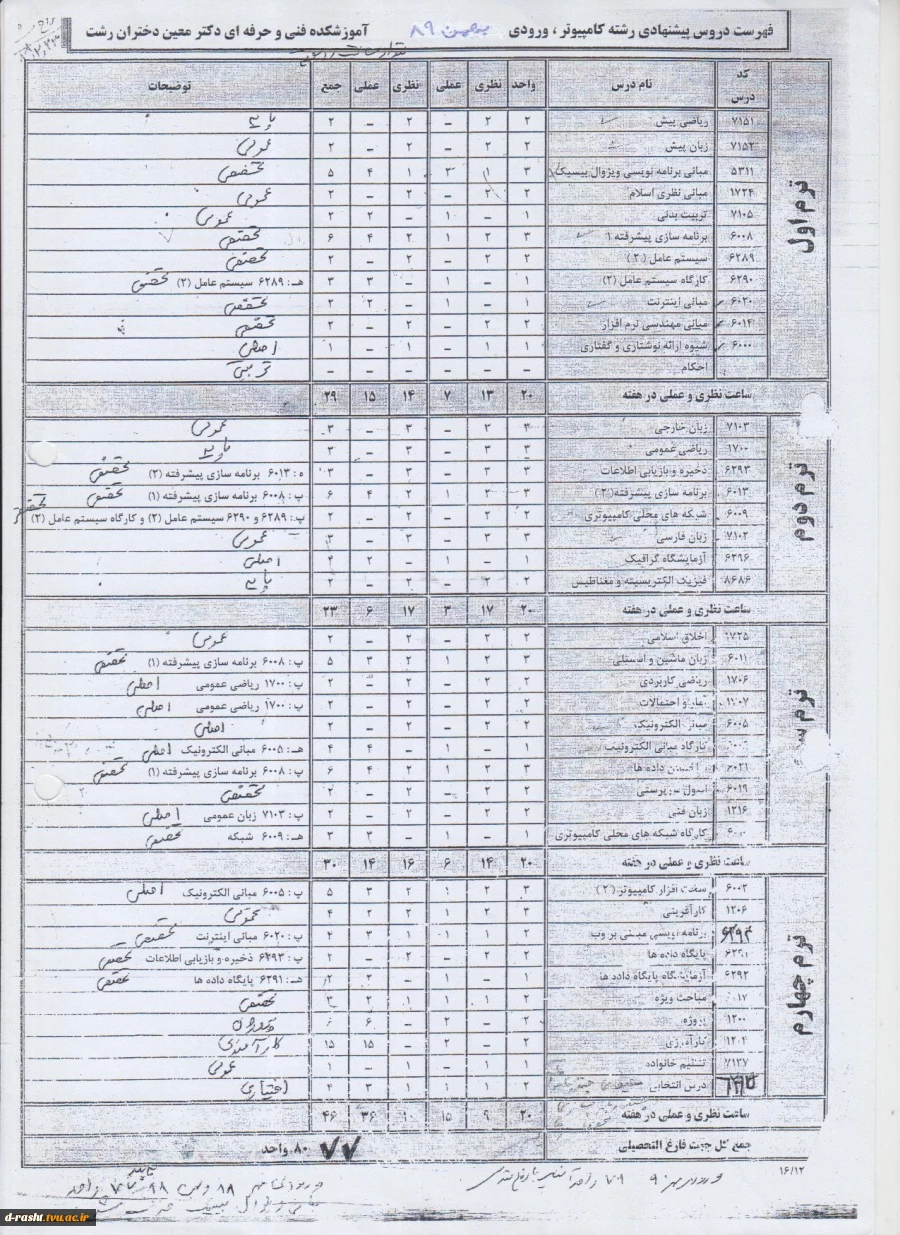 فهرست دروس پیشنهادی رشته کامپیوتر ، ورودی بهمن ۸۹ آموزشکده فنی و حرفه ای دکتر معین دختران رشت
کد درس نام درس واحد نظری عملی نظری عملی جمع توضیحات
ترم اول
۷۱۵۱ ریاضی پیش ۲ ۲ – ۲ – ۲
۷۱۵۲ زبان پیش ۲ ۲ – ۲ – ۲ عمومی
۵۳۱۱ مبانی برنامه نویسی ویژوال بیسیک ۳ ۱ ۳ ۱ ۴ ۵ تخصصی
۱۷۲۴ مبانی نظری اسلام ۲ ۲ – ۲ – ۲ عمومی
۷۱۰۵ تربیت بدنی ۱ – ۱ – ۲ ۲ عمومی
۶۰۰۸ برنامه سازی پیشرفته ۱ ۳ ۲ ۱ ۲ ۴ ۶ تخصصی
۶۲۸۹ سیستم عامل (۲) ۲ ۲ – ۲ – ۲ تخصصی
۶۲۹۰ کارگاه سیستم عامل (۲) ۱ – ۱ – ۳ ۳ هـ: ۶۲۸۹ سیستم عامل (۲) تخصصی
۶۰۲۰ مبانی اینترنت ۱ – ۱ – ۲ ۲ تخصصی
۶۰۱۴ مبانی مهندسی نرم افزار ۲ ۲ – ۲ – ۲ تخصصی
۶۰۰۰ شیوه ارائه نوشتاری و گفتاری ۱ ۱ – ۱ – ۱ اصلی
احکام – – – – – –
ساعت نظری و عملی در هفته ۲۰ ۱۳ ۷ ۱۴ ۱۵ ۲۹
ترم دوم
۷۱۰۳ زبان خارجی ۳ ۳ – ۳ – ۳ عمومی
۱۷۰۰ ریاضی عمومی ۳ ۳ – ۳ – ۳
۶۲۹۳ ذخیره و بازیابی اطلاعات ۳ ۳ – ۳ – ۳ ه: ۶۰۱۳ برنامه سازی پیشرفته (۲) تخصصی
۶۰۱۳ برنامه سازی پیشرفته (۲) ۳ ۲ ۱ ۲ ۴ ۶ پ: ۶۰۰۸ برنامه سازی پیشرفته (۱) تخصصی
۶۰۰۹ شبکه های محلی کامپیوتری ۲ ۲ – ۲ – ۲ پ: ۶۲۸۹ و ۶۲۹۰ سیستم عامل (۲) و کارگاه سیستم عامل (۲) تخصصی
۷۱۰۲ زبان فارسی ۳ ۳ – ۳ – ۳ عمومی
۶۲۹۶ آزمایشگاه گرافیک ۱ – ۱ – ۲ ۲ اصلی
۸۶۸۶ فیزیک الکتریسیته و مغناطیس ۲ ۲ – ۲ – ۲
ساعت نظری و عملی در هفته ۲۰ ۱۷ ۳ ۱۷ ۶ ۲۳
ترم
۱۷۲۵ اخلاق اسلامی ۲ ۲ – ۲ – ۲ عمومی
۶۰۱۱ زبان ماشین و اسمبلی ۳ ۲ ۱ ۲ ۳ ۵ پ: ۶۰۰۸ برنامه سازی پیشرفته (۱) تخصصی
۱۷۰۶ ریاضی کاربردی ۲ ۲ – ۲ – ۲ پ: ۱۷۰۰ ریاضی عمومی اصلی
۱۷۰۷ آمار و احتمالات ۲ ۲ – ۲ – ۲ پ: ۱۷۰۰ ریاضی عمومی اصلی
۶۰۰۵ مبانی الکترونیک ۲ ۲ – ۲ – ۲ اصلی
کارگاه مبانی الکترونیک ۱ – ۱ – ۴ ۴ هـ: ۶۰۰۵ مبانی الکترونیک اصلی
۶۰۲۱ داده ها ۳ ۲ ۱ ۲ ۴ ۶ پ: ۶۰۰۸ برنامه سازی پیشرفته (۱) تخصصی
۶۰۱۹ اصول سرپرستی ۲ ۲ – ۲ – ۲ تخصصی
۱۲۱۶ زبان فنی ۲ ۲ – ۲ – ۲ پ: ۷۱۰۳ زبان عمومی اصلی
کارگاه شبکه های محلی کامپیوتری ۱ – ۱ – ۳ ۳ هـ: ۶۰۰۹ شبکه تخصصی
ساعت نظری و عملی در هفته ۲۰ ۱۴ ۶ ۱۶ ۱۴ ۳۰
ترم چهارم
۶۰۰۲ سخت افزار کامپیوتر (۲) ۳ ۲ ۱ ۲ ۳ ۵ پ: ۶۰۰۵ مبانی الکترونیک اصلی
۱۲۰۶ کارآفرینی ۳ ۲ ۱ ۲ ۲ ۴ عمومی
۶۲۹۴ برنامه نویسی مبتنی بر وب ۲ ۱ ۱ ۱ ۳ ۴ پ: ۶۰۲۰ مبانی اینترنت تخصصی
۶۲۹۱ پایگاه داده ها ۲ ۲ – ۲ – ۲ پ: ۶۲۹۳ ذخیره و بازیابی اطلاعات تخصصی
۶۲۹۲ آزمایشگاه پایگاه داده ها ۱ – ۱ – ۲ ۲ هـ: ۶۲۹۱ پایگاه داده ها تخصصی
مباحث ویژه ۲ ۱ ۱ ۱ ۲ ۳ تخصصی
۱۲۰۰ پروژه ۲ – ۲ – ۶ ۶
۱۲۰۴ کارآموزی ۲ – ۲ – ۱۵ ۱۵ کارآموزی
۷۱۲۷ تنظیم خانواده ۱ ۱ – ۱ – ۱ عمومی
درس انتخابی ۲ ۱ ۱ ۱ ۳ ۴ اختیاری
ساعت نظری و عملی در هفته ۲۰ ۹ ۱۵ ۱۰ ۳۶ ۴۶
جمع کل جهت فارغ التحصیلی ۷۷ ۸۰ واحد
۱۶/۱۲
d-rasht.tvu.ac.ir